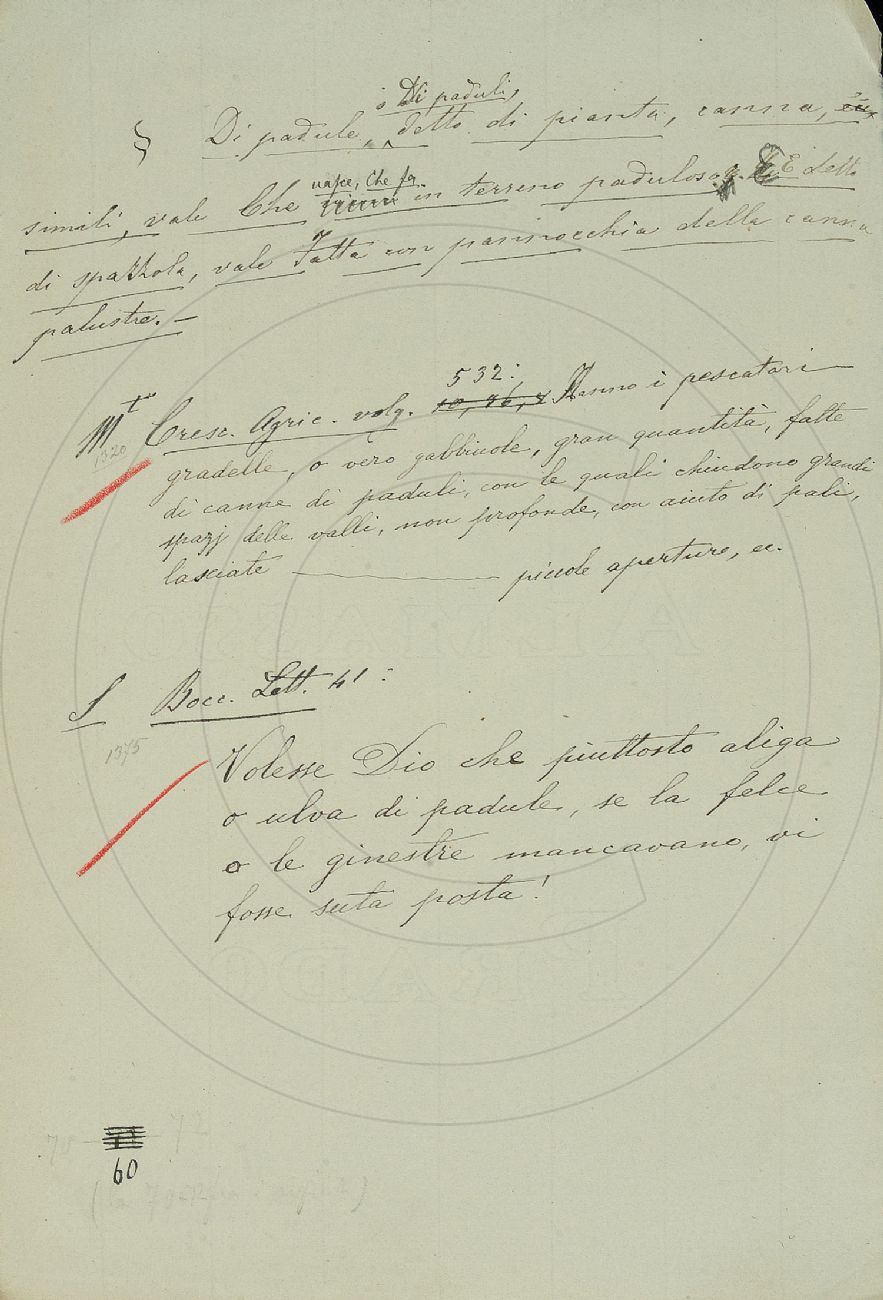 o Di paduli,
§ Di padule, detto di pianta, canna, e
simili, vale Che nasce, Che fa in terreno paduloso. E detto
di spazzola, vale Fatta con pannocchia della canna
palustre. —
532:
M Cresc. Agric. volg. 10, 36, Hanno i pescatori
1320
gradelle, o vero gabbiuole, gran quantità, fatte
di canne di paduli, con le quali chiudono grandi
spazj delle valli, non profonde, con aiuto di pali,
lasciate piccole aperture, ec.
S Bocc. Lett. 41:
1375
Volesse Dio che piuttosto aliga
o ulva di padule, se la felce
o le ginestre mancavano, vi
fosse suta posta!
72
60